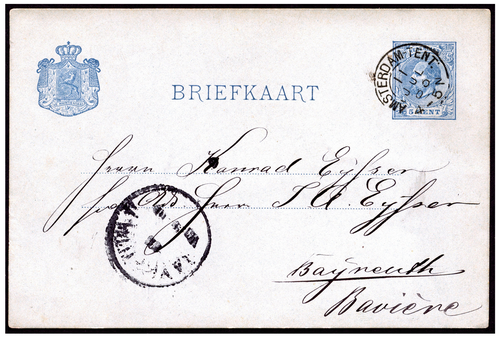 BRIEFKAART
AMSTERDAM-TENT.
5 CENT
Herrn Konrad Eyßer
Herrn J A Eyßer
Bayreuth
Bavière